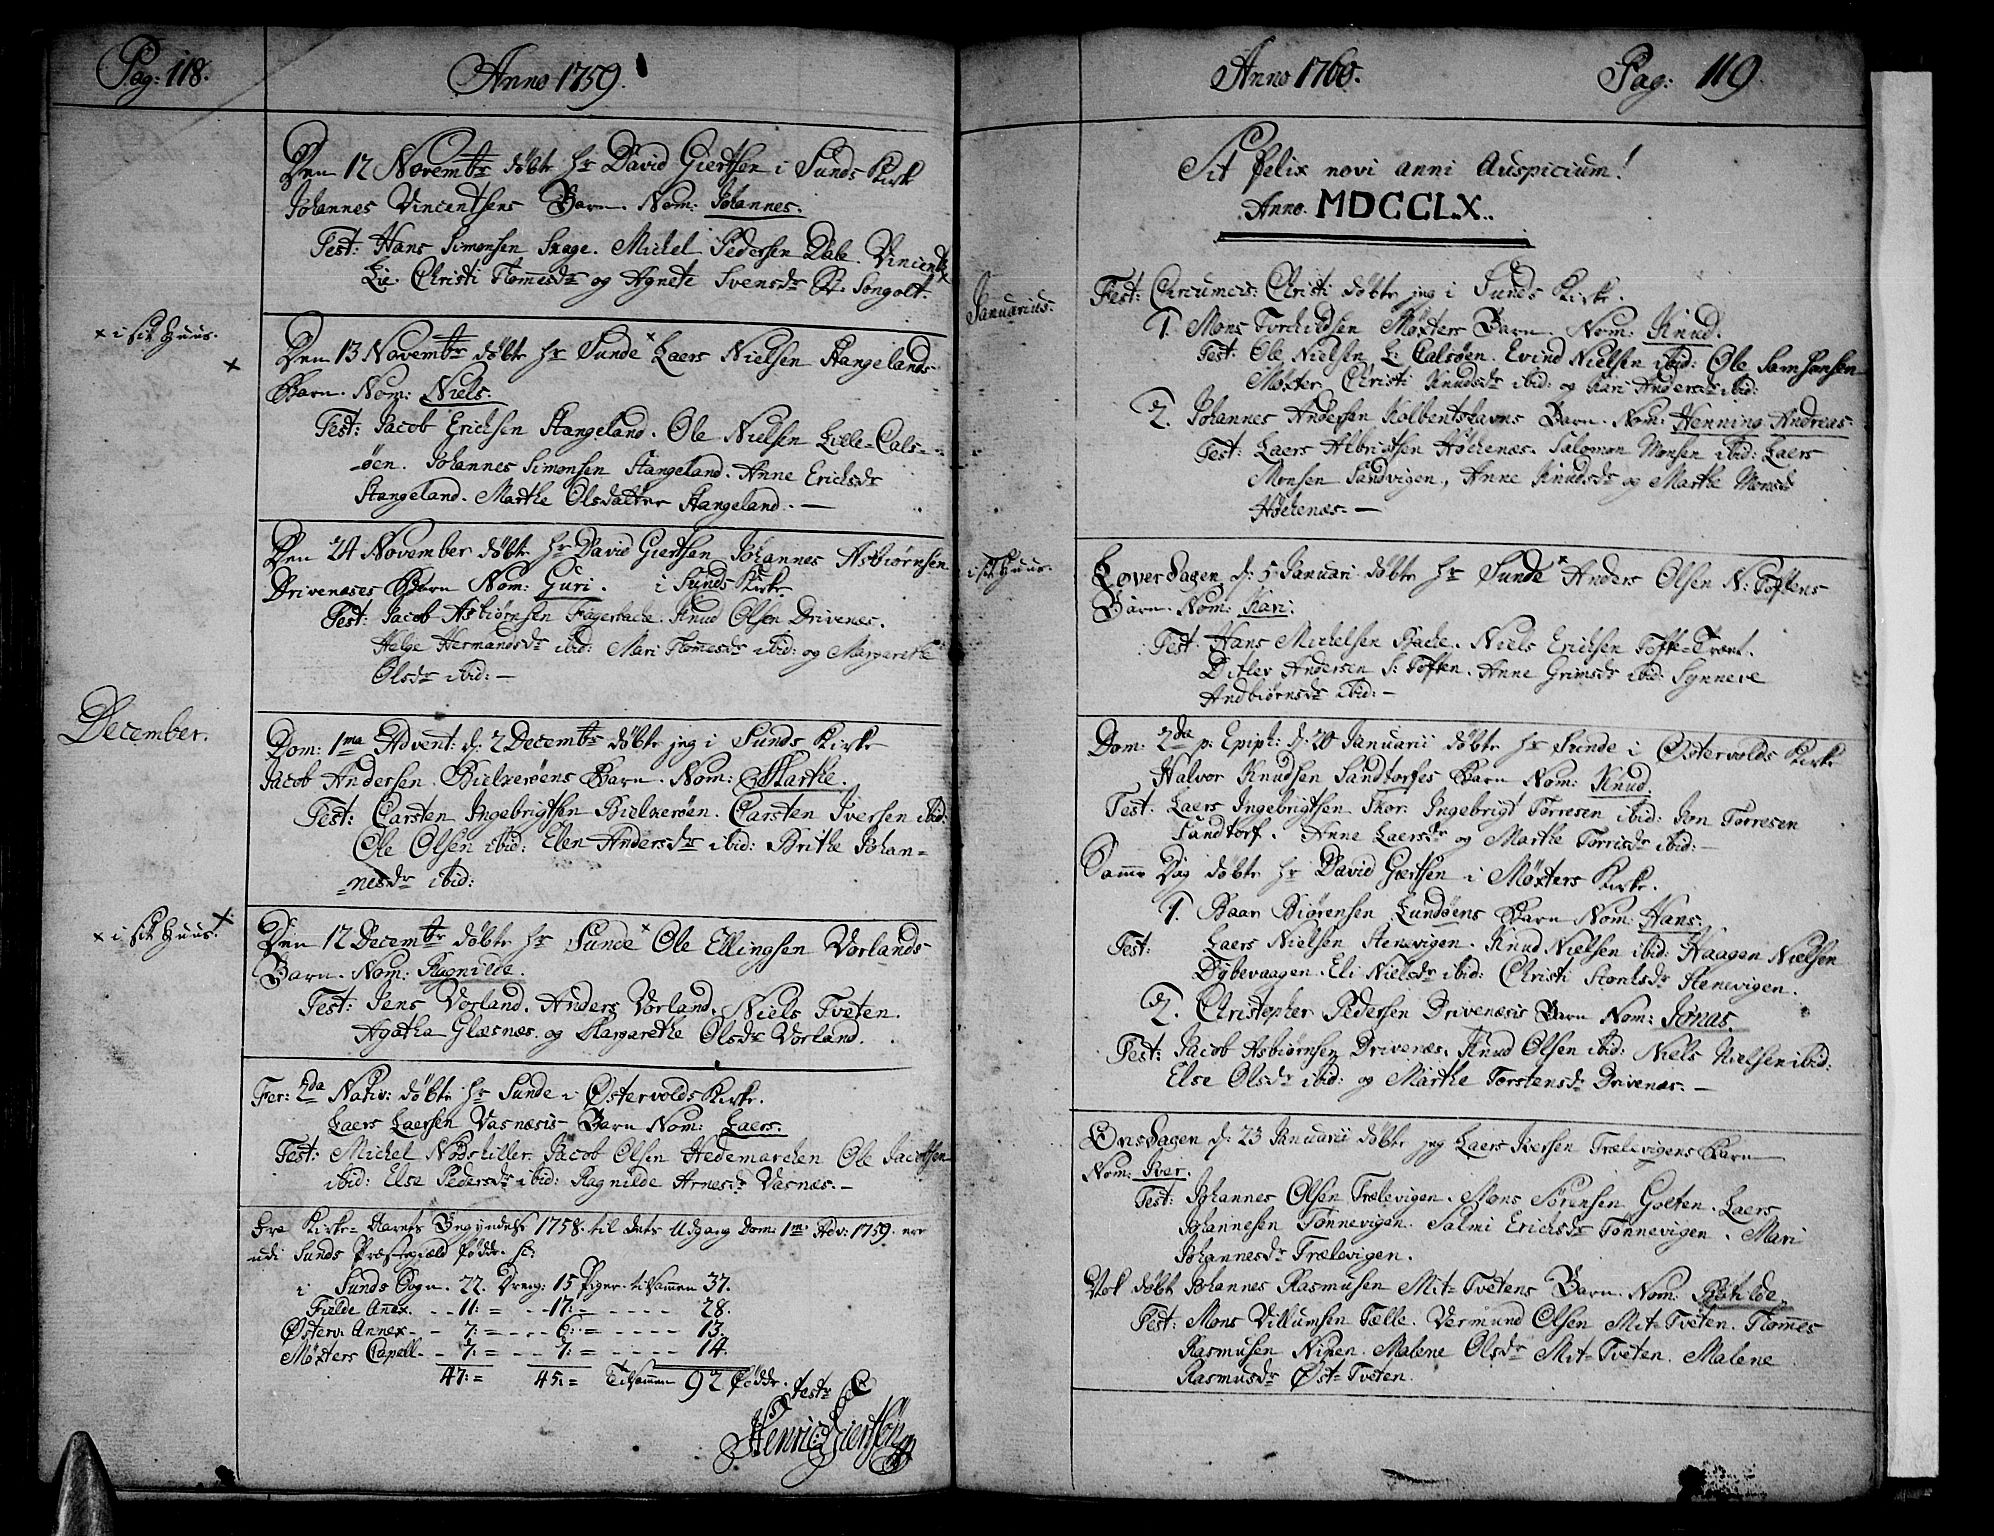 Pag: 118.
Anno 1759.
Den 12 Novembr døbte Hr David Giertsen i Sunds Kirke
Johannes Vincentsens Barn. Nom: Johannes.
Test: Hans Simonsen Skage. Michel Pedersen Dale. Vincentz
Lie. Christi Thomesdr og Agnete Svensdr St: Songolt.
× i sit Huus.
×
Den 13 Novembr døbte Hr Sunde × Laers Nielsen Stangelands
Barn. Nom: Niels.
Test: Jacob Erichsen Stangeland. Ole Nielsen Lille-Cals-
-øen. Johannes Simonsen Stangeland. Anne Erichsdr
Stangeland. Marthe Olsdatter Stangeland. —
Den 24 November døbte Hr David Giertsen Johannes Asbiørnsen
Drivenæses Barn Nom: Guri. i Sunds Kirke.
Test: Jacob Asbiørnsen Fagerbache. Knud Olsen Drivenes.
Helge Hermansdr ibid: Mari Thomesdr ibid: og Margarethe
Olsdr ibid: —
December.
Dom: 1ma Advent: d: 2 Decembr døbte jeg i Sunds Kirke
Jacob Andersen Bielkerøens Barn. Nom: Marthe.
Test: Carsten Ingebrigtsen Bielkerøen. Carsten Iversen ibid:
Ole Olsen ibid: Elen Andersdr ibid: Brithe Johan-
-nesdr ibid:
× i sit Huus.
×
Den 12 Decembr døbte Hr Sunde × Ole Ellingsen Vorlands
Barn. Nom: Ragnilde.
Test: Jens Vorland. Anders Vorland. Niels Tveten.
Agatha Glæsnæs. og Margarethe Olsdr Vorland.
Fer: 2da Nativ: døbte Hr Sunde i Østervolds Kirke.
Laers Laersen Vasnæsis Barn Nom: Laers.
Test: Michel Nodskiller. Jacob Olsen Hedemarchen Ole Jacobsen
ibid: Else Pedersdr ibid: Ragnilde Arnesdr Vasnæs. —
Fra Kirke-Aarets Begyndelse 1758. til dets Udgang Dom: 1ma Adv: 1759. ere
udi Sunds Præstegiæld fødde. sc:
i Sunds Sogn. 22. Dreng: 15 Piger. tilsammen 37.
Fielde Anex. - - 11: = - - 17: = - - - - 28.
Østerv: Annex - - 7: = - - - 6: = - - - - 13.
Møxters Capell - - 7: = - - - 7: = - - - - 14.
47: = 45: = Tilsammen 92 fødde. testr
Henric Giertsøn
Anno 1760.
Pag: 119
Sit Felix novi anni Auspicium!
Anno. MDCCLX.
Januarius.
Fest: Circumcis: Christi døbte jeg i Sunds Kirke.
1. Mons Torchildsen Møxters Barn. Nom: Knud.
Test: Ole Nielsen L: Calsøen. Evind Nielsen ibid: Ole Samsonsen
Møxter. Christi Knudsdr ibid: og Kari Andersdr ibid:
2. Johannes Andersen Kolbentshavns Barn. Nom: Henning Andreas
Test: Laers Albrigtsen Høchenæs. Salomon Monsen ibid: Laers
Monsen Sandvigen, Anne Knudsdr og Marthe Monsdr
Høchenæs. —
i sit Huus.
Løverdagen d: 5 Januari døbte Hr Sunde × Anders Olsen N: Toftens
Barn. Nom: Kari.
Test: Hans Michelsen Bache. Niels Erichsen Tofte-Træet.
Ditlev Andersen S: Toften. Anne Grimsdr ibid: Synneve
Andbiørnsdr ibid: —
Dom: 2da p: Epiph: d: 20 Januarii døbte Hr Sunde i Østervolds Kirke
Halvor Knudsen Sandtorfes Barn Nom: Knud.
Test: Laers Ingebrigtsen Skor. Ingebrigt Torresen ibid: Jon Torresen
Sandtorf. Anne Laersdr og Marthe Torrisdr ibid: —
Samme Dag døbte Hr David Giertsen i Møxters Kirke.
1. Baar Biørensen Lundøens Barn Nom: Hans.
Test: Laers Nielsen Stenevigen. Knud Nielsen ibid: Haagen Nielsen
Dybevaagen. Eli Nielsdr ibid: Christi Storksdr Stenevigen.
2. Christopher Pedersen Drivenæsis Barn Nom: Jonas.
Test: Jacob Asbiørnsen Drivenæs. Knud Olsen ibid: Niels Nielsen ibid:
Else Olsdr ibid: og Marthe Torstensdr Drivenæs. —
Onsdagen d: 23 Januarii døbte jeg Laers Iversen Trælevigens Barn
Nom: Iver.
Test: Johannes Olsen Trælevigen. Mons Sørensen Goten. Laers
Johannesen Tønnevigen. Salmi Erichsdr Tønnevigen. Mari
Johannesdr Trælevigen.
Nok døbt Johannes Rasmusen Mit-Tvetens Barn. Nom: Botilde.
Test: Mons Villumsen Tælle. Vermund Olsen Mit-Tveten. Thomes
Rasmusen Nipen. Malene Olsdr Mit-Tveten. Malene
Rasmusdr Øst-Tveten.